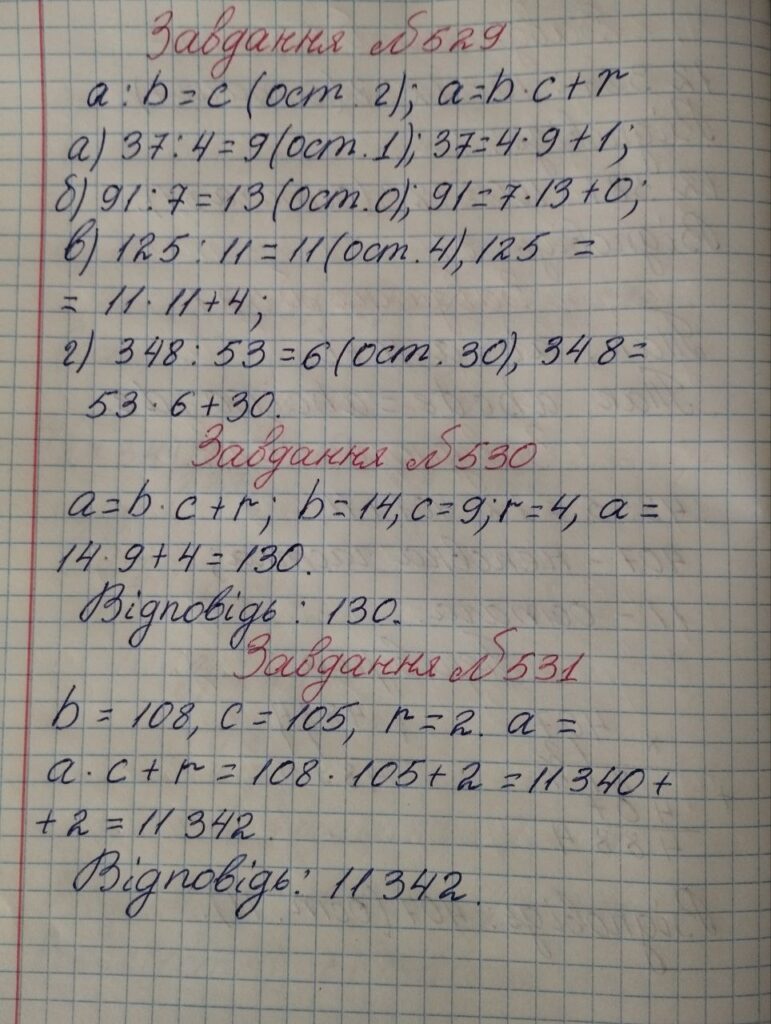 Завдання №529
a : b = c (ост. г); a = b · c + r
а) 37 : 4 = 9 (ост. 1); 37 = 4 · 9 + 1;
б) 91 : 7 = 13 (ост. 0); 91 = 7 · 13 + 0;
в) 125 : 11 = 11 (ост. 4), 125 =
= 11 · 11 + 4;
г) 348 : 53 = 6 (ост. 30), 348 =
53 · 6 + 30.
Завдання №530
a = b · c + r; b = 14, c = 9; r = 4, a =
14 · 9 + 4 = 130.
Відповідь : 130.
Завдання №531
b = 108, c = 105, r = 2. a =
a · c + r = 108 · 105 + 2 = 11 340 +
+ 2 = 11 342.
Відповідь: 11 342.